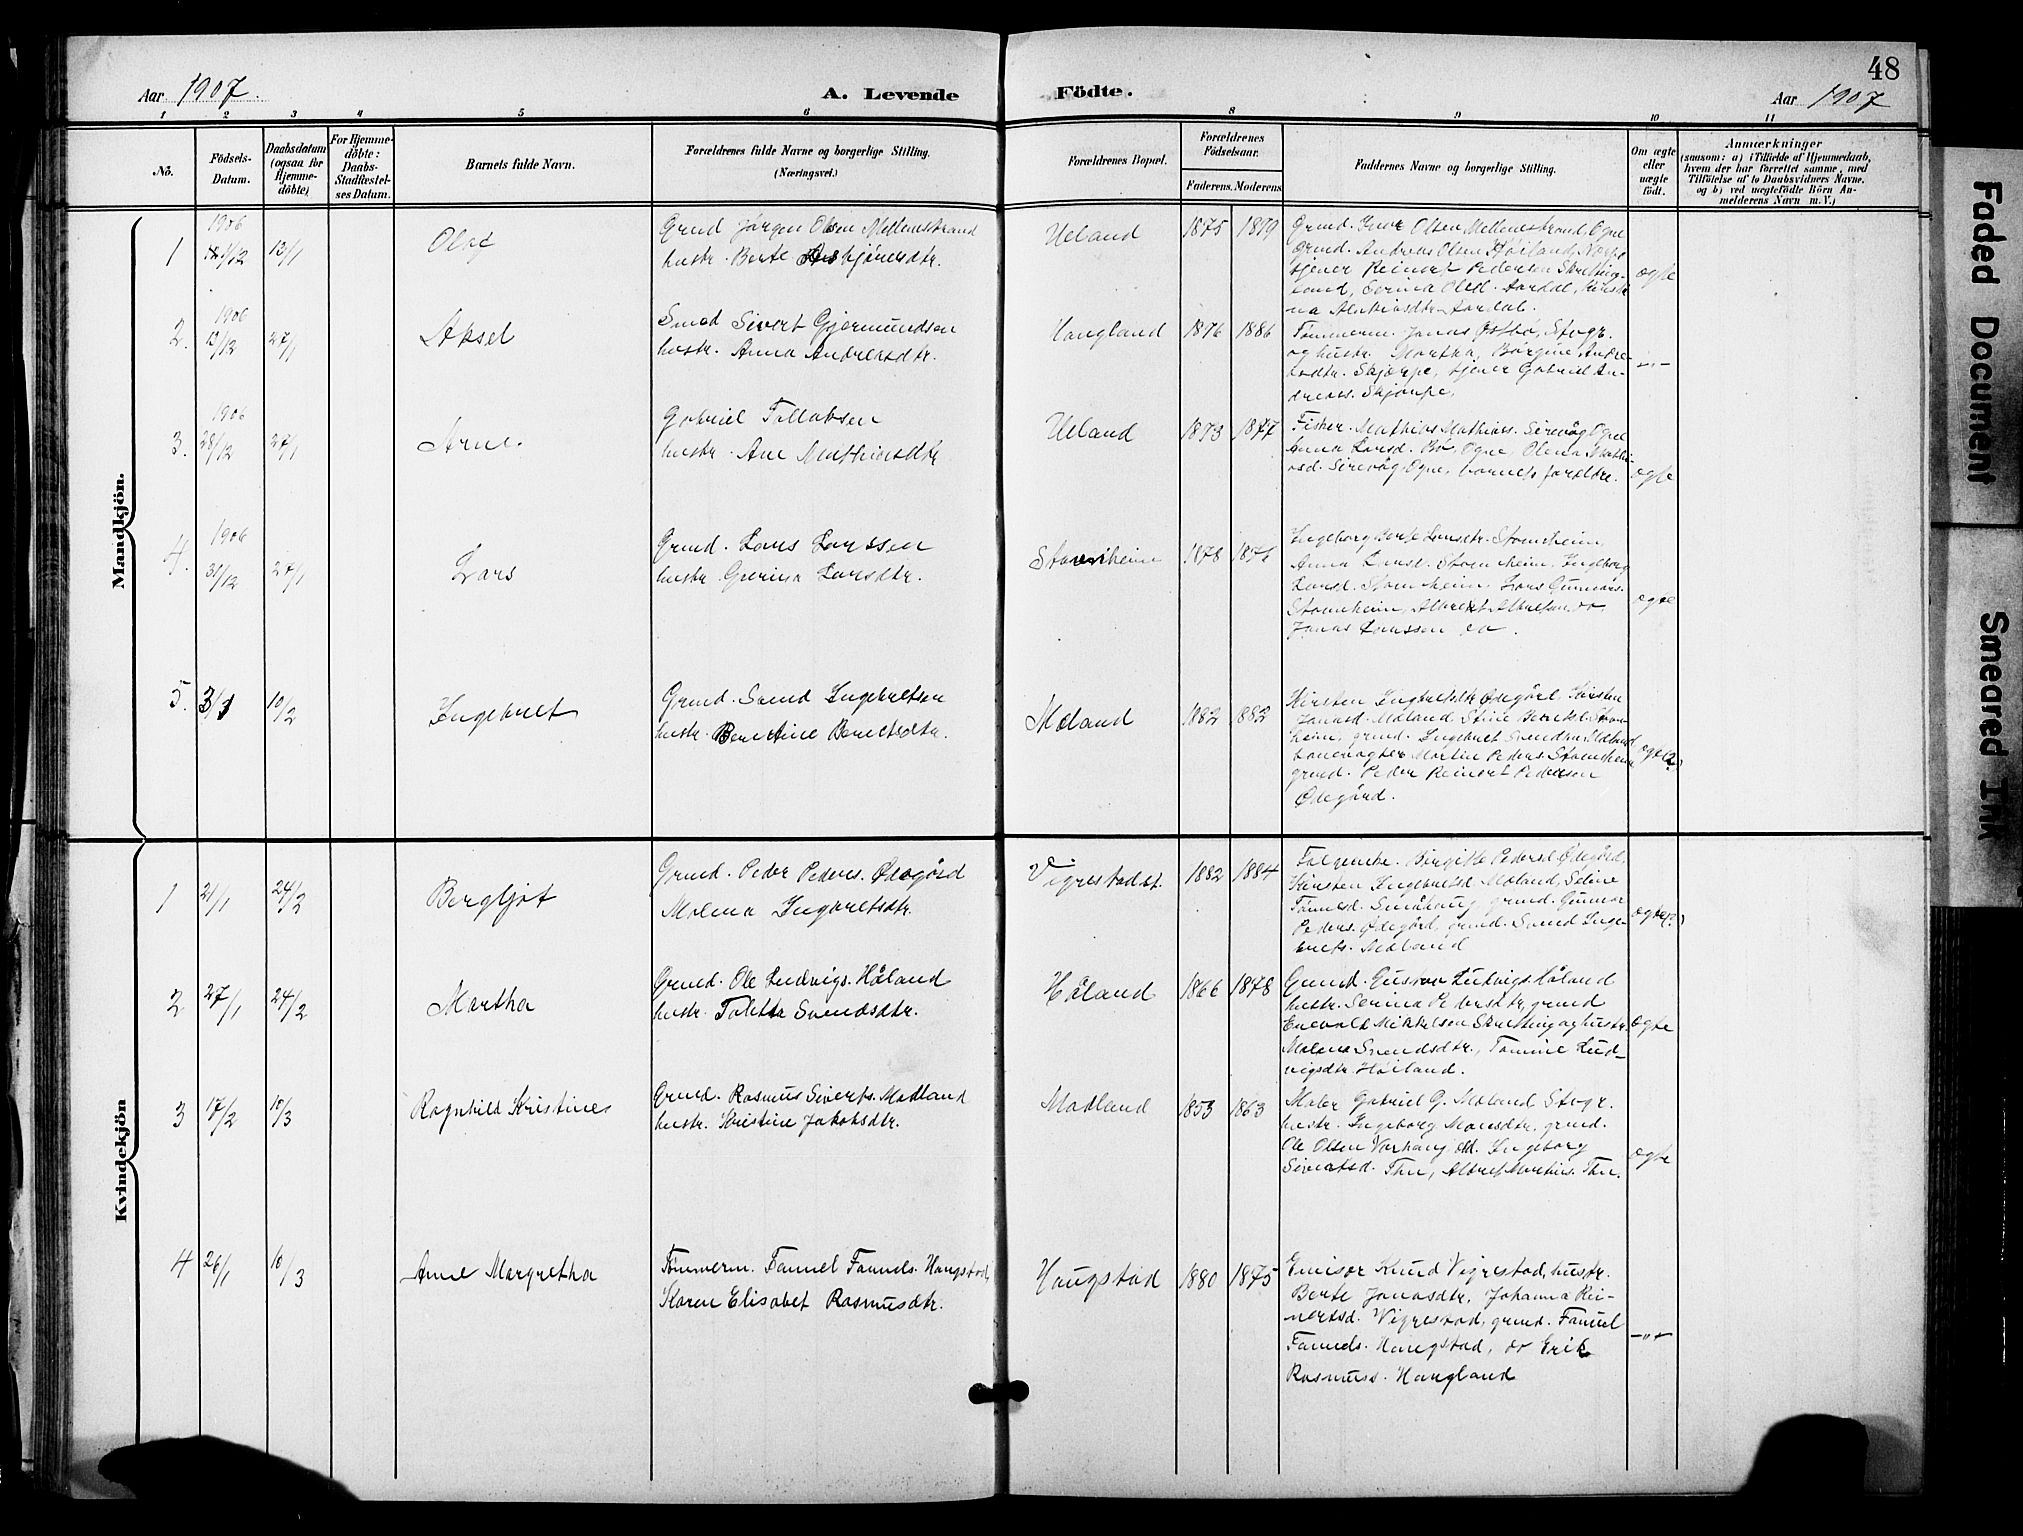 48
Aar 1907.
A. Levende Födte.
Aar 1907
1 2 3 4 5 6 8 9 10 11
No.
Födsels-Datum.
Daabsdatum (ogsaa for Hjemme-döbte)
For Hjemme-döbte: Daabs-Stadfæstel-ses Datum.
Barnets fulde Navn.
Forældrenes fulde Navne og borgerlige Stilling.
(Næringsvei.)
Forældrenes Bopæl.
Forældrenes Födselsaar.
Faderens. Moderens.
Faddernes Navne og borgerlige Stilling.
Om ægte eller uægte födt.
Anmærkninger
(saasom: a) i Tilfælde af Hjemmedaab,
hvem der har forrettet samme, med
Tilföielse af to Daabsvidners Navne.
og b) ved uægtefödte Börn An-
melderens Navn m. V.)
Mandkjön.
1
1906
13/1
Olaf
Grmd Jørgen Olsen Mellemstrand
hustr. Berte Asbjørnsdtr.
Ueland
1875 1879
Grmd. Iver Olsen Mellemstrand, Ogne
grmd. Andreas Olsen Høiland, Nærbø
tjener Reinert Pedersen Skretting-
land, Serina Olsd. Aardal,
Aardal.
ægte
2.
1906
13/12
27/1
Aksel
Smed Sivert Gjermundsen
hustr. Anna Andreasdtr.
Haugland
1876 1886
Tømmerm. Jonas Østbø, Stvgr.
og hustr. Martha, Børgine Andre-
asdtr. Skjærpe, tjener Gabriel An-
dreas. Skjærpe.
-"-
3.
1906
28/12
27/1
Arne.
Gabriel Tollaksen
hustr. Ane Mathiasdtr
Ueland
1873 1877
Fisker. Mathias Mathias. Sirevåg Ogne
Anna Larsd. Bø Ogne, Olena Mathi-
asd. Sirevåg Ogne, barnets forældre.
ægte
4.
1906
31/12
27/1
Lars
Grmd. Lars Larssen
hustr. Gurina Larsdtr.
Stavnheim
1878
Ingeborg Berte Larsdtr. Stavnheim
Anna Larsd. Stavnheim, Ingeborg
Larsd. Stavnheim, Lars Gunnars.
Stavnheim, Albret Albretsen do,
Jonas Larssen do.
ægte
5.
10/2
Ingebret
Grmd. Svend Ingebretsen
hustr. Berntine Berntsdtr.
Moland
1882 1882
Kirsten Ingebretsdtr Ødegård, Kirsten
Jonasd. Moland, Stine Berntsd. Stavn-
heim, grmd. Ingebret Svendsen Moland
banevogter Martin Peders. Stavnheim
grmd. Peder Reinert Pedersen
Ødegård.
ægte(2)
Kvindekjön
1
21/1
24/2
Bergljot
Grmd. Peder Peders. Ødegård
Molena Ingbretsdtr.
Vigrestad st.
1882 1884
Birgitte Pedersd. Ødegård,
Kirsten Ingebretsd. Moland, Seline
Tønnesd. Småhaug, grmd. Gunnar
Peders. Ødegård, grmd. Svend Inge-
brets. Moland
ægte(2)
2
27/1
24/2
Martha
Grmd. Ole Ludvigs. Håland
hustr. Talette Svendsdtr.
Håland
1866 1878
Grmd. Gustav Ludvigs. Håland
hustr. Serina Pedersdtr, grmd
Enevald Mikkelsen Skretting og hustr.
Molena Svendsdtr., Tomine Lud-
vigsdtr. Høiland.
ægte
3
17/2
10/3
Ragnhild Kristine
Grmd. Rasmus Siverts. Madland
hustr. Kristine Jakobsdtr.
Madland
1853 1863
Maler Gabriel G. Moland Stvgr.
hustr. Ingeborg Monsdtr. grmd.
Ole Olsen Varhaug Ingeborg
Sivertsd. Thu, Albret Martius. Thu.
ægte
4
26/1
10/3
Anne Margretha
Tømmerm. Samuel Samuels. Haugstad,
Karen Elisabet Rasmusdtr.
Haugstad
1880 1875
Emisær Knud Vigrestad, hustr.
Berte Jonasdtr, Johanna Rei-
nertsd. Vigrestad, grmd. Samuel
Samuels. Haugstad, do Erik
Rasmuss. Haugland
-"-
Faded Document
Smeared Ink